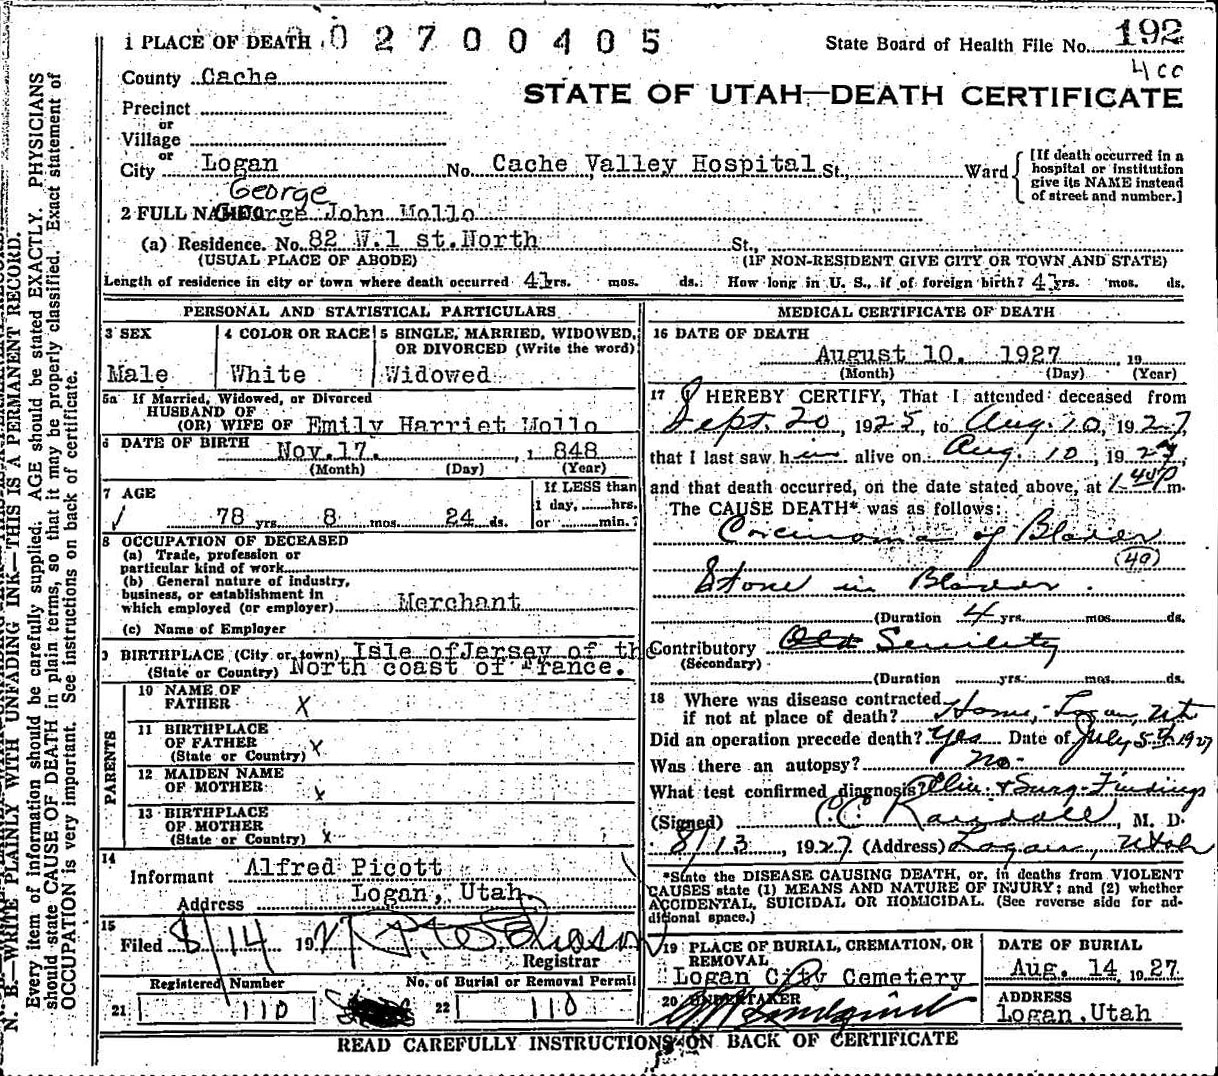 1 PLACE OF DEATH 0 2 7 0 0 4 0 5
State Board of Health File No. 192
400
County Cache
STATE OF UTAH—DEATH CERTIFICATE
Precinct
or
Village
or
City Logan No. Cache Valley Hospital St., Ward
[If death occurred in a
hospital or institution
give its NAME instead
of street and number.]
George
2 FULL NAME George John Mollo
(a) Residence. No. 82 W.1 st.North St.,
(USUAL PLACE OF ABODE) (IF NON-RESIDENT GIVE CITY OR TOWN AND STATE)
Length of residence in city or town where death occurred 41 yrs. mos. ds. How long in U. S., if of foreign birth? 41 yrs. mos. ds.
PERSONAL AND STATISTICAL PARTICULARS
3 SEX
Male
4 COLOR OR RACE
White
5 SINGLE, MARRIED, WIDOWED,
OR DIVORCED (Write the word)
Widowed
5a If Married, Widowed, or Divorced
HUSBAND OF
(OR) WIFE OF Emily Harriet Mollo
6 DATE OF BIRTH Nov.17. , 1 848
(Month) (Day) (Year)
7 AGE
78 yrs. 8 mos. 24 ds.
If LESS than
1 day, hrs.
or min.?
8 OCCUPATION OF DECEASED
(a) Trade, profession or
particular kind of work
(b) General nature of industry,
business, or establishment in
which employed (or employer) Merchant
(c) Name of Employer
9 BIRTHPLACE (City or town) Isle of Jersey of the
(State or Country) North coast of France.
PARENTS
10 NAME OF
FATHER X
11 BIRTHPLACE
OF FATHER X
(State or Country)
12 MAIDEN NAME
OF MOTHER X
13 BIRTHPLACE
OF MOTHER
(State or Country) X
14
Informant Alfred Picott
Address Logan, Utah.
15
Filed 8/14 192
Registrar
Registered Number
21 110
No. of Burial or Removal Permit
22 110
MEDICAL CERTIFICATE OF DEATH
16 DATE OF DEATH
August 10. 1927 19
(Month) (Day) (Year)
17 I HEREBY CERTIFY, That I attended deceased from
Sept. 20, 1925, to Aug. 10, 1927,
that I last saw him alive on Aug. 10, 1927,
and that death occurred, on the date stated above, at 1 40 P m.
The CAUSE DEATH* was as follows:
Carcinoma of Bladder
(49)
Stone in Bladder.
(Duration 4 yrs. mos. ds.
Contributory Old Senility
(Secondary)
(Duration yrs. mos. ds.
18 Where was disease contracted
if not at place of death? Home, Logan, Ut
Did an operation precede death? Yes Date of July 5th 1927
Was there an autopsy? no.
What test confirmed diagnosis? Clin. & Surg. Findings
(Signed) C.C. Randall, M. D.
8/13, 1927 (Address) Logan, Utah
*State the DISEASE CAUSING DEATH, or, in deaths from VIOLENT
CAUSES state (1) MEANS AND NATURE OF INJURY; and (2) whether
ACCIDENTAL, SUICIDAL OR HOMICIDAL. (See reverse side for ad-
ditional space.)
19 PLACE OF BURIAL, CREMATION, OR
REMOVAL
Logan City Cemetery
DATE OF BURIAL
Aug. 14 1927
20 UNDERTAKER
Lindquist
ADDRESS
Logan, Utah
READ CAREFULLY INSTRUCTIONS ON BACK OF CERTIFICATE
N. B.—WRITE PLAINLY WITH UNFADING INK—THIS IS A PERMANENT RECORD.
Every item of information should be carefully supplied. AGE should be stated EXACTLY. PHYSICIANS
should state CAUSE OF DEATH in plain terms, so that it may be properly classified. Exact statement of
OCCUPATION is very important. See instructions on back of certificate.